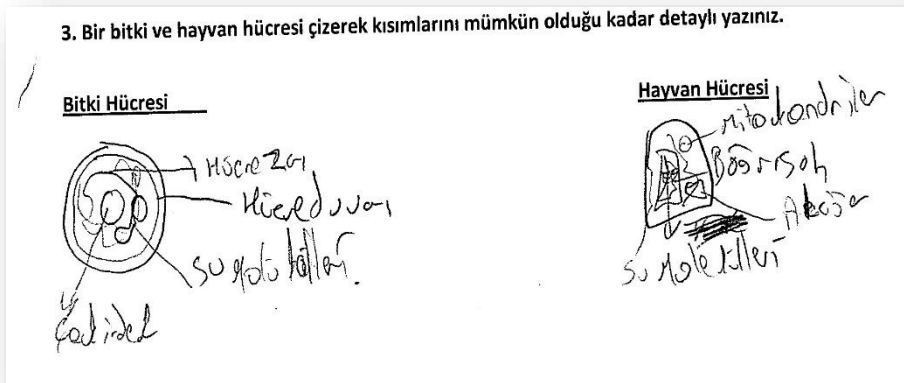 3. Bir bitki ve hayvan hücresi çizerek kısımlarını mümkün olduğu kadar detaylı yazınız.
Bitki Hücresi
Hücre Zarı
Hücre duvarı
Su molekülleri.
Çekirdek
Hayvan Hücresi
Mitokondriler
Bağırsak
Akciğer
Su Molekülleri